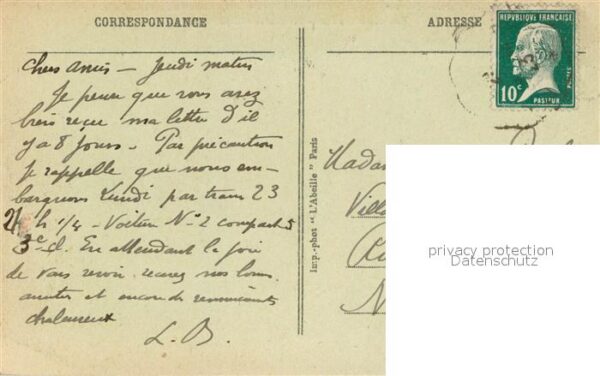 CORRESPONDANCE
ADRESSE
REPUBLIQUE FRANÇAISE
10c
PASTEUR
POSTES
Chers amis – Jeudi matin
Je pense que vous avez
bien reçu ma lettre d'il
y a 8 jours. Par précaution
je rappelle que nous em-
barquons Lundi par train 23
21 h 1/4 – Voiture N° 2 compart 5
3e cl. En attendant la joie
de vous revoir recevez nos bons
amitiés et encore de remerciements
chaleureux
L. B.
Imp.-phot "L'Abeille" Paris
Madam
Villa
N
privacy protection
Datenschutz